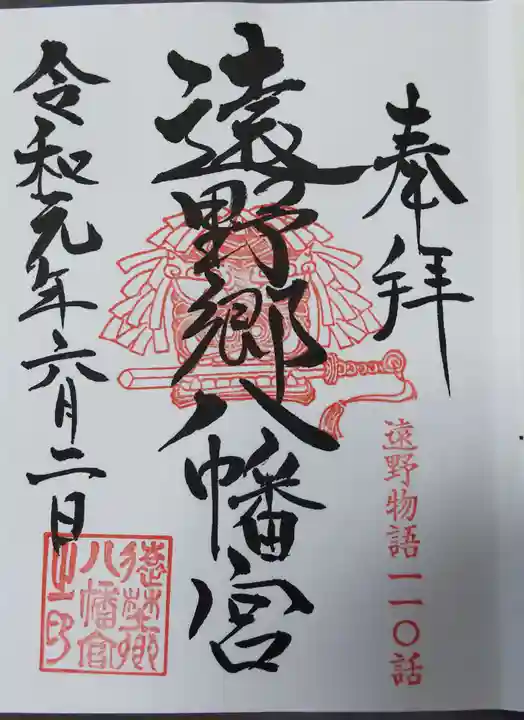 奉拝
遠野物語 一一〇話
遠野郷八幡宮
令和元年六月二日
遠野郷
八幡宮
之印